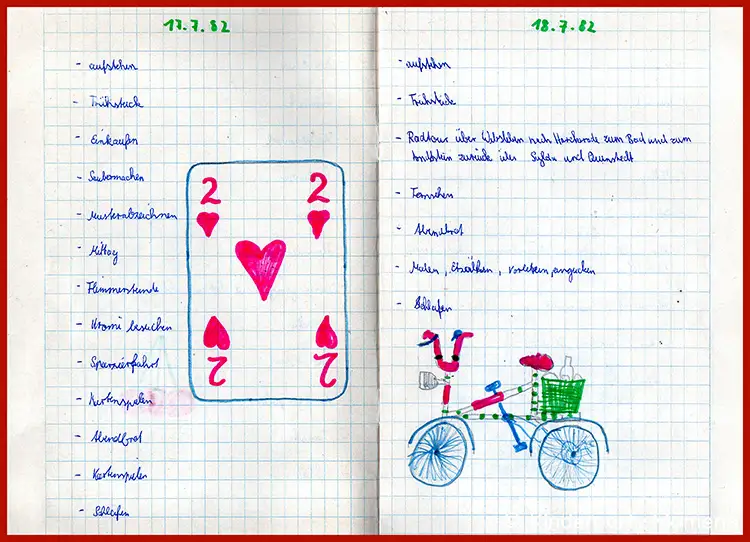 17.7.82
- aufstehen
- Frühstück
- Einkaufen
- Saubermachen
- Musterabzeichnen
- Mittag
- Flimmerstunde
- Kromi besuchen
- Spazierfahrt
- Kartenspielen
- Abendbrot
- Kartenspielen
- Schlafen
2 2
2 2
18.7.82
- aufstehen
- Frühstück
- Radtour über nach zum Bad und zum
zurück über Sylda und
- Fernsehen
- Abendbrot
- Malen, Erzählen, vorlesen, angucken
- Schlafen